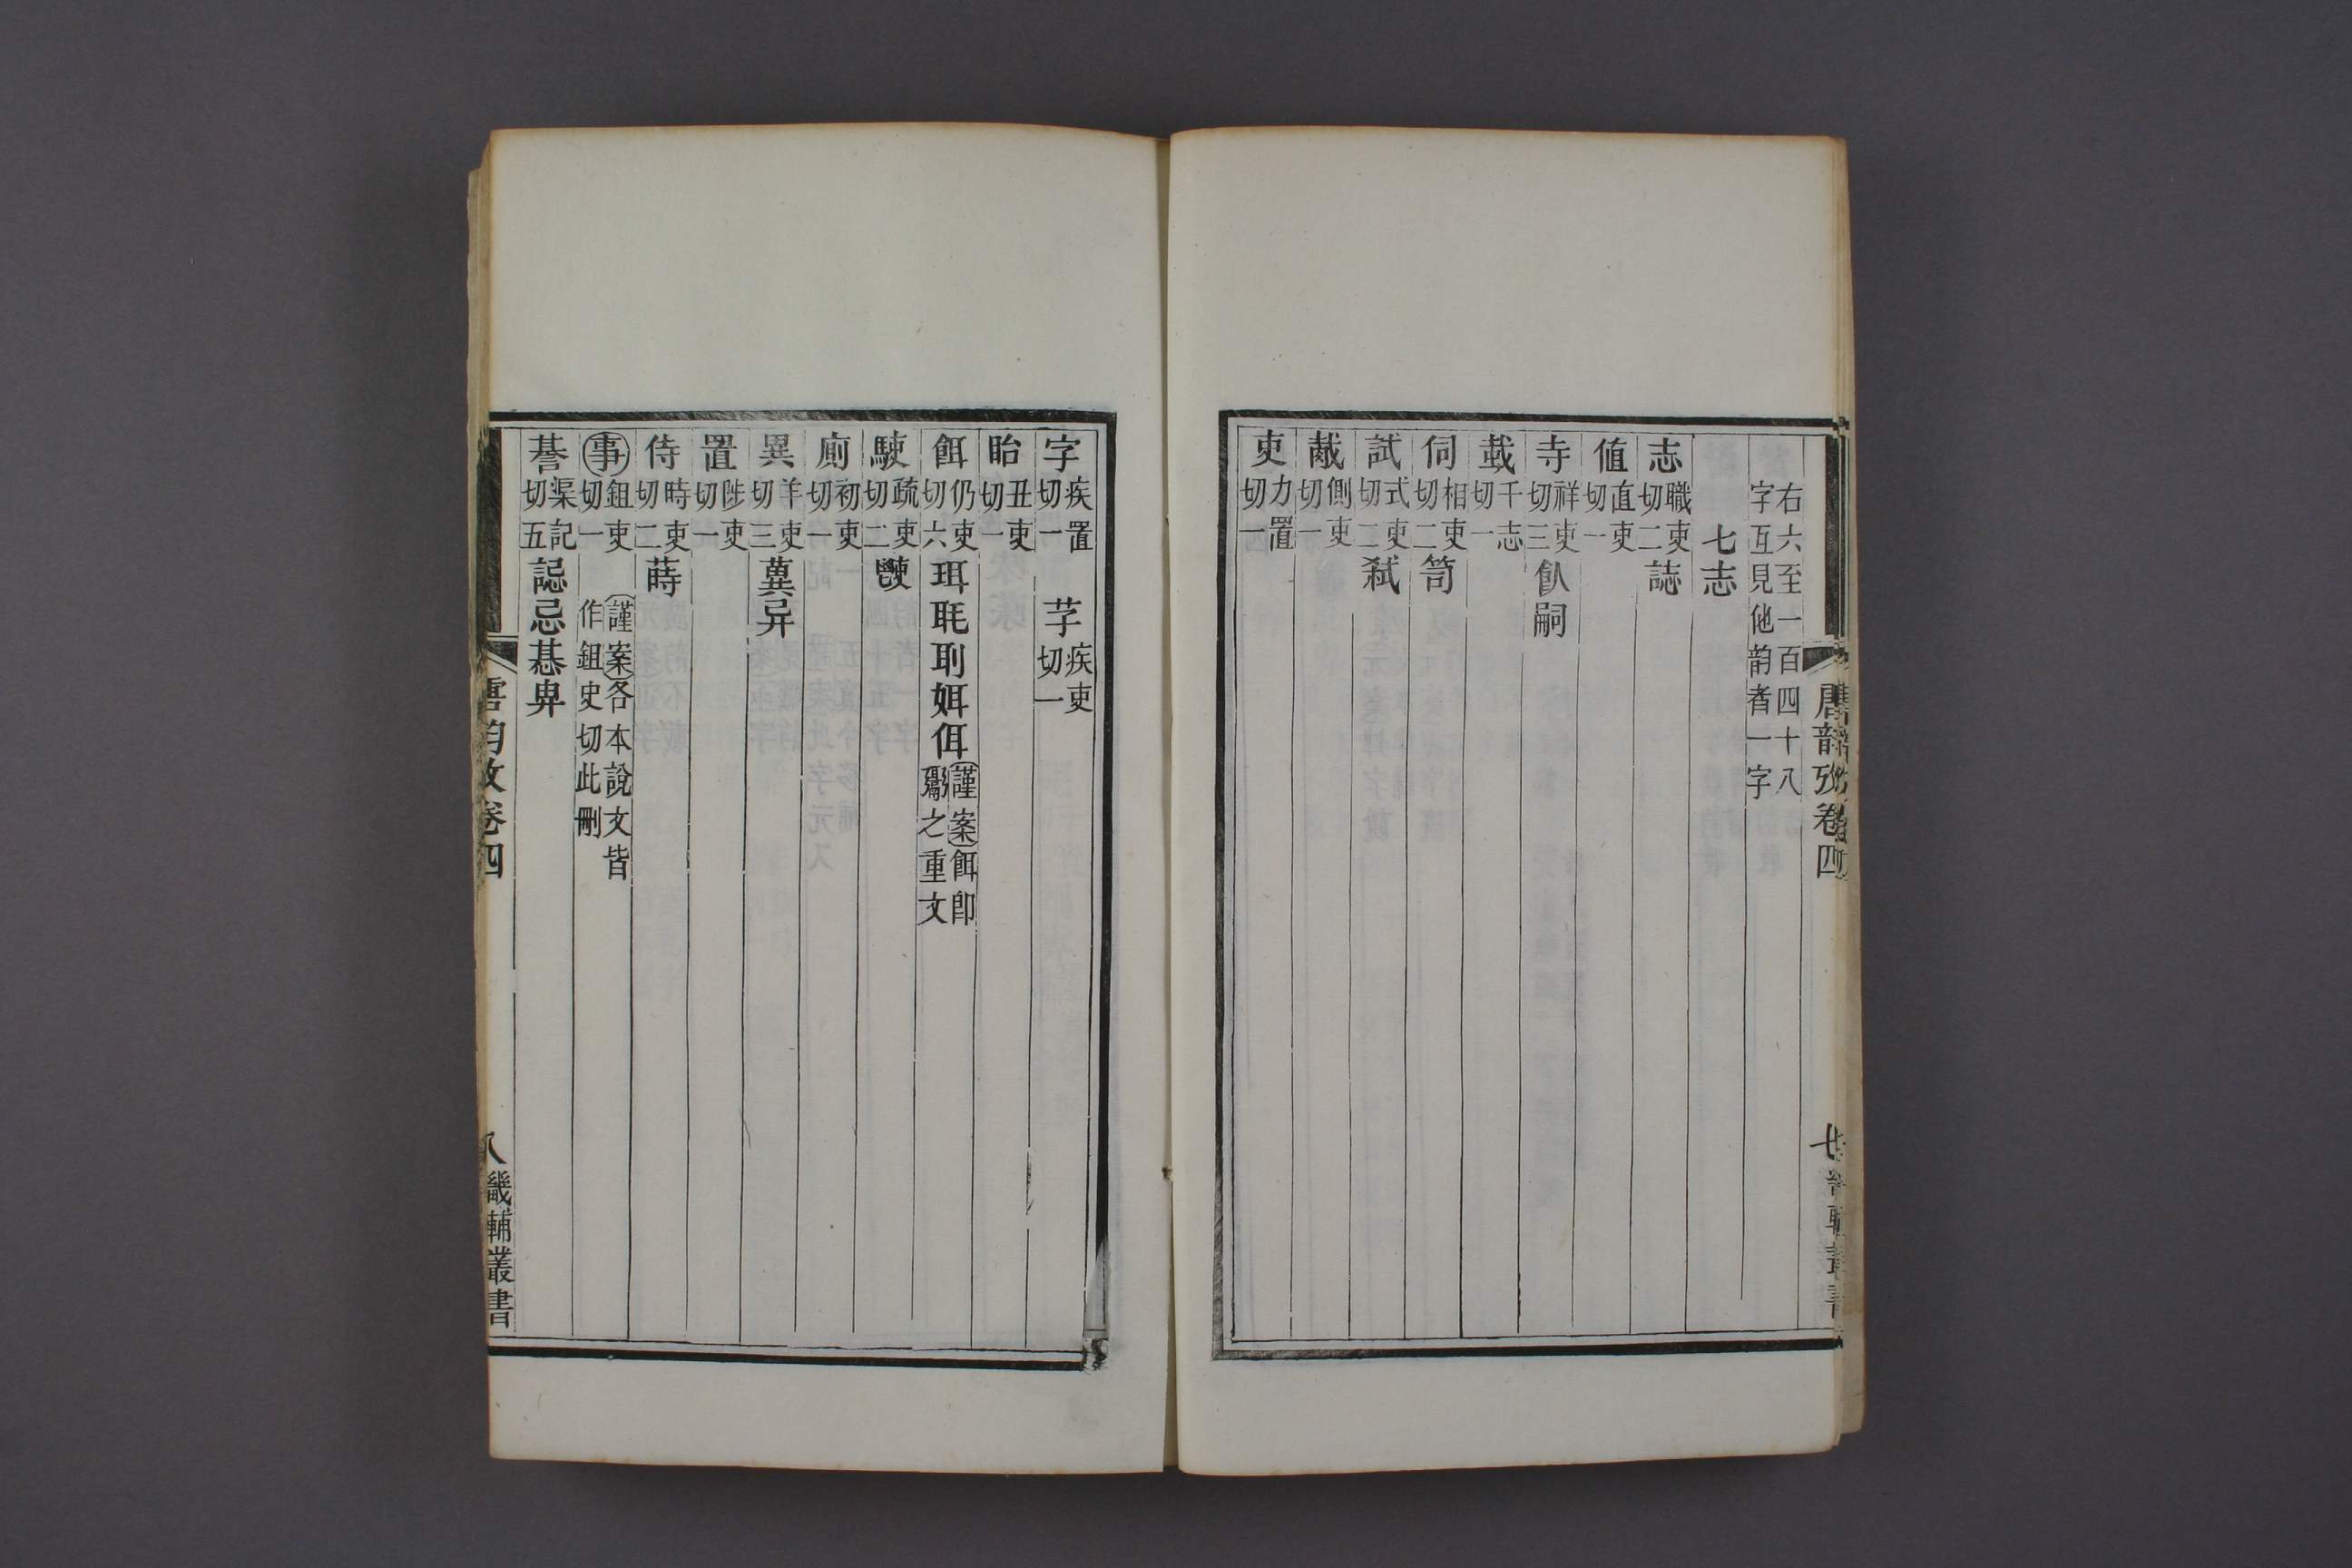 右六至一百四十八
字互見他韵者一字
七志
志職吏切二誌
値直吏切一
寺祥吏切三飤嗣
蛓千志切一
伺相吏切二笥
試式吏切二弑
胾側吏切一
吏力置切一
唐韵攷卷四
七
字疾置切一 芓疾吏切一
眙丑吏切一
餌仍吏切六珥毦刵姆佴謹案餌卽
鬻之重文
駛疏吏切二
廁初吏切一
異羊吏切三廙异
置陟吏切一
侍時吏切二蒔
事鉏吏切一謹案各本說文皆
作鉏史切此刪
諅渠記切五誋忌惎畁
唐韵攷卷四
八
畿輔叢書